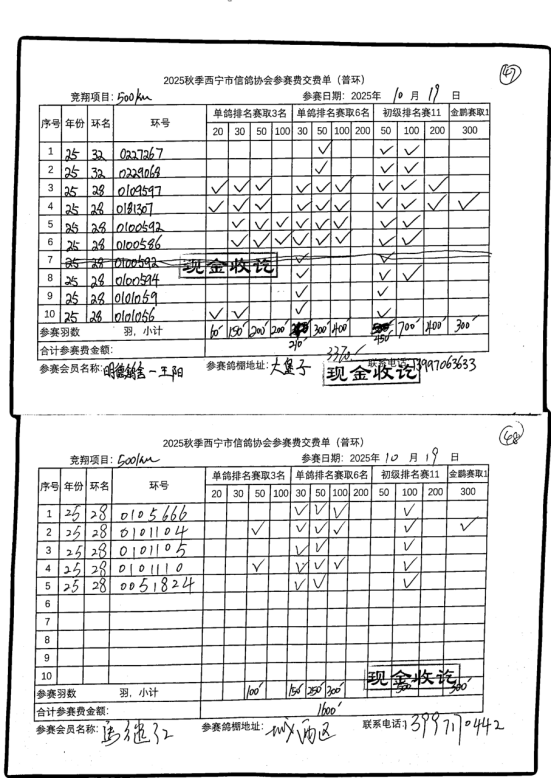 47
2025秋季西宁市信鸽协会参赛费交费单（普环）
竞翔项目：500km 参赛日期：2025年 10 月 19 日
序号 年份 环名 环号 单鸽排名赛取3名 单鸽排名赛取6名 初级排名赛11 金鹏赛取1
20 30 50 100 30 50 100 200 50 100 200 300
1 25 32 0227267 ✓ ✓ ✓
2 25 32 0229068 ✓ ✓ ✓
3 25 28 0109597 ✓ ✓ ✓ ✓ ✓ ✓ ✓ ✓ ✓
4 25 28 0181307 ✓ ✓ ✓ ✓ ✓ ✓ ✓ ✓ ✓ ✓
5 25 28 0100592 ✓ ✓ ✓ ✓ ✓ ✓ ✓ ✓
6 25 28 0100586 ✓ ✓ ✓ ✓ ✓ ✓ ✓ ✓
7 25 28 0100592 ✓ ✓
现金收讫
8 25 28 0100594 ✓ ✓ ✓
9 25 28 0101059 ✓ ✓
10 25 28 0101056 ✓ ✓ ✓ ✓
参赛羽数 羽，小计 60 150 200 200 300 400 700 400 300
210 450
合计参赛费金额： 3370
参赛会员名称：明德鸽舍一王阳 参赛鸽棚地址：大堡子 联系电话：13997063633
现金收讫
48
2025秋季西宁市信鸽协会参赛费交费单（普环）
竞翔项目：500km 参赛日期：2025年 10 月 19 日
序号 年份 环名 环号 单鸽排名赛取3名 单鸽排名赛取6名 初级排名赛11 金鹏赛取1
20 30 50 100 30 50 100 200 50 100 200 300
1 25 28 0105666 ✓ ✓ ✓ ✓
2 25 28 0101104 ✓ ✓ ✓ ✓ ✓ ✓
3 25 28 0101105 ✓ ✓ ✓
4 25 28 0101110 ✓ ✓ ✓ ✓ ✓
5 25 28 0051824 ✓ ✓ ✓
6
7
8
9
10
现金收讫
参赛羽数 羽，小计 100 150 250 300 500 300
合计参赛费金额： 1600
参赛会员名称：马 参赛鸽棚地址：城西区 联系电话：13997170442